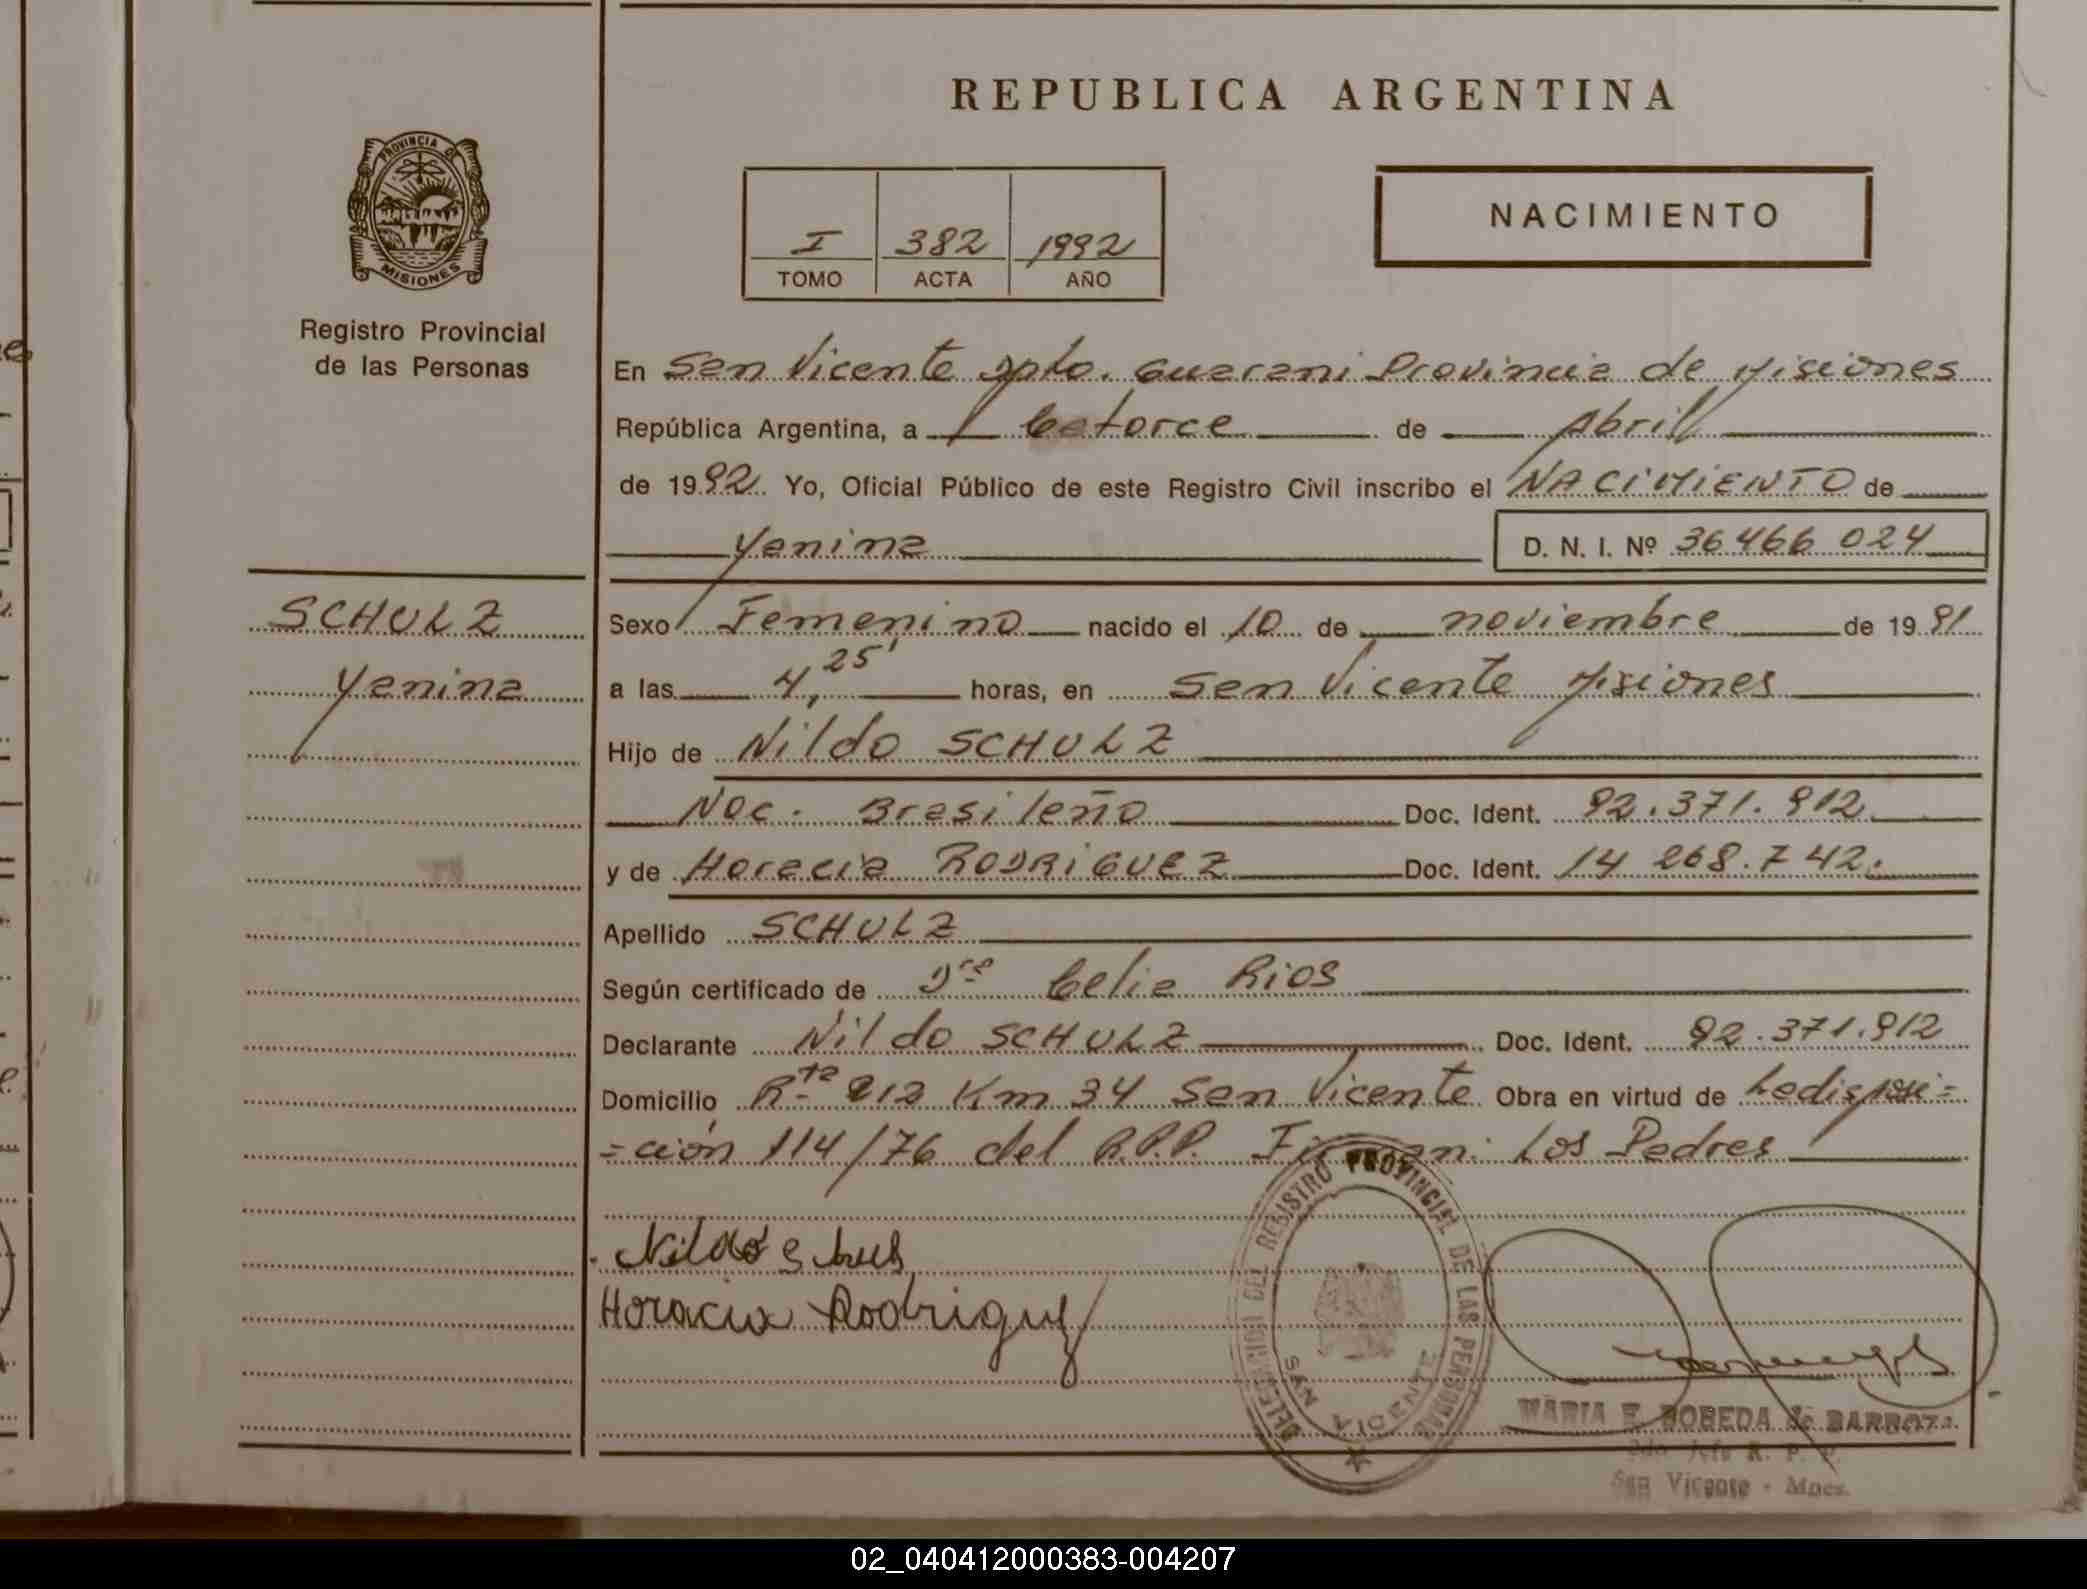 REPUBLICA ARGENTINA
PROVINCIA DE
MISIONES
Registro Provincial
de las Personas
I 382 1992
TOMO ACTA AÑO
NACIMIENTO
En San Vicente Dpto. Guarani Provincia de Misiones
República Argentina, a Catorce de Abril
de 1992. Yo, Oficial Público de este Registro Civil inscribo el NACIMIENTO de
Yanina D. N. I. Nº 36466 024
SCHULZ
Yanina
Sexo Femenino nacido el 10 de noviembre de 1991
a las 4,25' horas, en San Vicente Misiones
Hijo de Nildo SCHULZ
Nac. Brasileño Doc. Ident. 92.371.912
y de Horacia RODRIGUEZ Doc. Ident. 14 268.742.
Apellido SCHULZ
Según certificado de Dra Celia Rios
Declarante Nildo SCHULZ Doc. Ident. 92.371.912
Domicilio Rta 212 Km 34 San Vicente Obra en virtud de La disposi=
=ción 114/76 del R.P.P. Firman: Los Padres
Nildo
Horacia Rodriguez
DELEGACION DEL REGISTRO PROVINCIAL DE LAS PERSONAS
SAN VICENTE
MARIA E. BOBEDA de BARROZA
2do Jefe R. P. P.
San Vicente - Mnes.
02_040412000383-004207